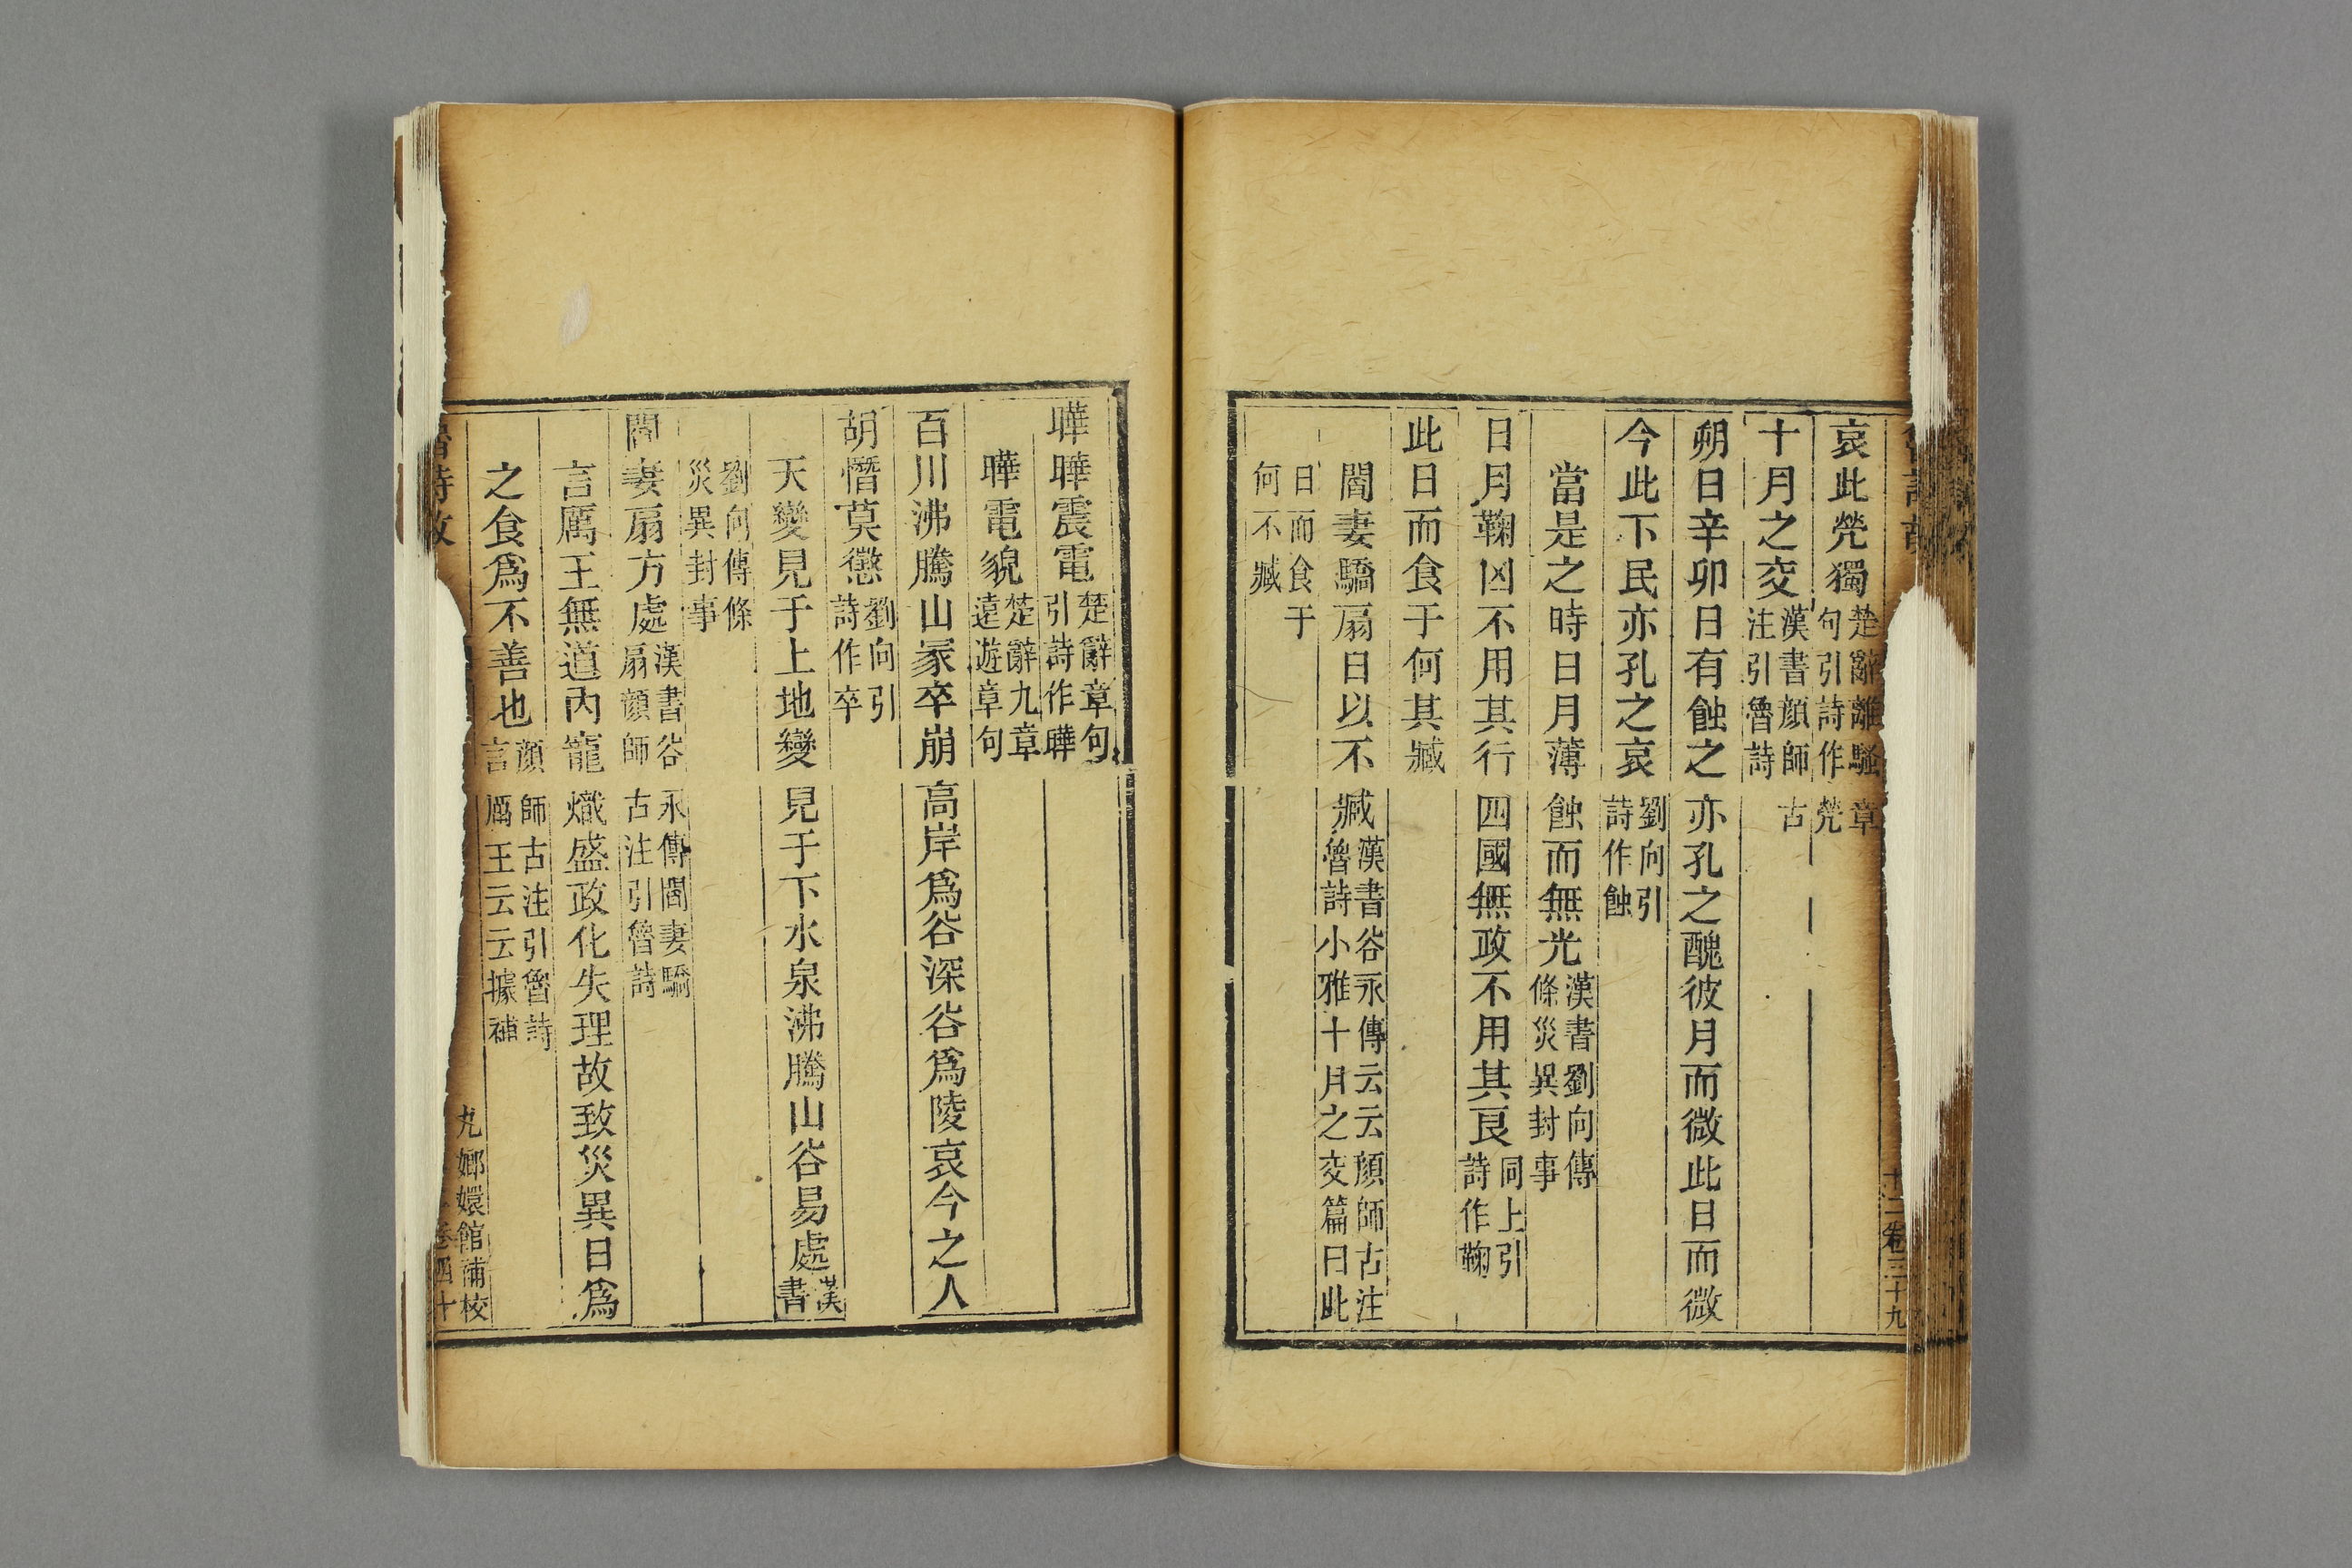 哀此煢獨楚辭離騷章句引詩作煢
十月之交漢書顔師古注引魯詩
朔日辛卯日有蝕之亦孔之醜彼月而微此日而微
今此下民亦孔之哀劉向引詩作蝕
當是之時日月薄蝕而無光漢書劉向傳條災異封事
日月鞠凶不用其行四國無政不用其良同上引詩作鞠
此日而食于何其臧
閻妻驕扇日以不臧漢書谷永傳云云顔師古注魯詩小雅十月之交篇曰此
日而食于何不臧
十二卷三十九
曄曄震電楚辭章句引詩作曄
曄電貌楚辭九章遠遊章句
百川沸騰山冢卒崩高岸爲谷深谷爲陵哀今之人
胡憯莫懲劉向引詩作卒
天變見于上地變見于下水泉沸騰山谷易處漢書
劉向傳條災異封事
閻妻扇方處漢書谷永傳閻妻驕扇顔師古注引魯詩
言厲王無道內寵熾盛政化失理故致災異日爲
之食爲不善也顔師古注引魯詩言厲王云云據補
嫏嬛館補校
魯詩故
卷四十